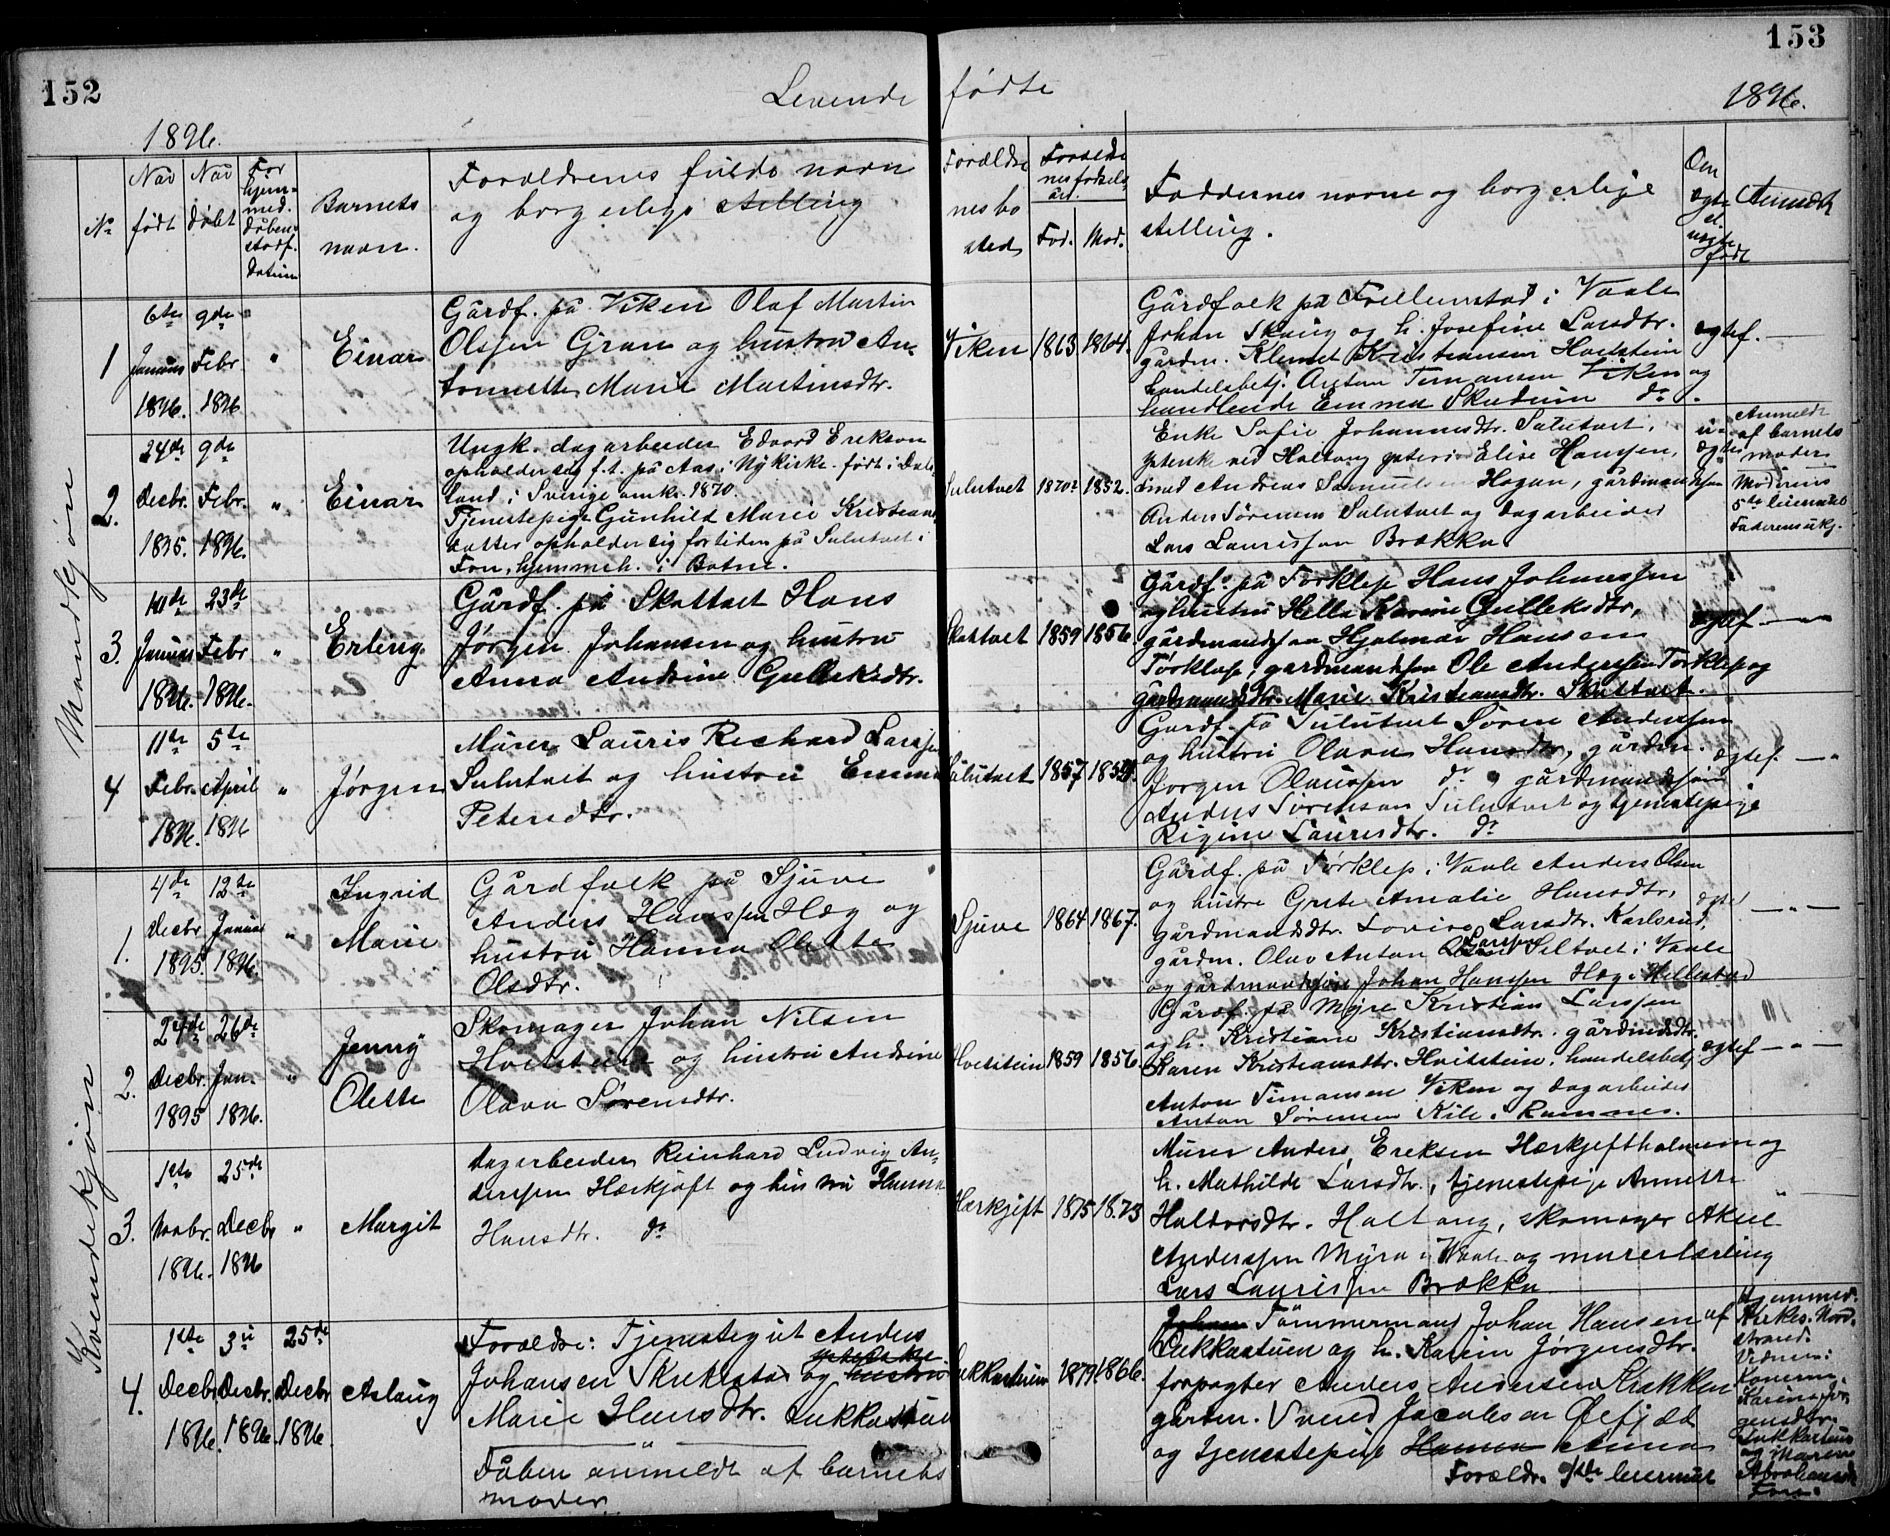 152
153
Levende fødte
1896.
1896.
No
Når født
Når døbt
For hjem-
med.
Dåbens
stadf.
Datum
Barnets
navn.
Forældrenes fulde navn
og borgerlige stilling
Forældre
nes bo
sted
Forældre
nes fødsels
år.
Fad.
Mod.
Faddernes navne og borgerlige
stilling.
Om
ægte
el.
uægte
født
Anmærk
Mandkjøn
1
6te
Januar
1896.
9de
Febr
1896
"
Einar
Gårdf. på Viken Olaf Martin
Olssen Gran og hustru An-
tonette Marie Martinsdtr.
Viken
1863
1864.
Gårdfolk på i Vaale
Johan Skaug og h. Josefine Larsdtr.
gårdm. Klemet Kristiansen Hvitstein
handelsbetj. Anton Timansen Viken og
handlende Emma Skudium do.
ægtef.
2.
24de
Decbr.
1895.
9de
Febr.
1896.
"
Einar
Ungk. dagarbeider Edvard Erikson
opholder sig f.t. på Aas i Nykirke. født i Dals
land i Sverige omkr. 1870.
Tjenestepige Gunhild Marie Kristians
datter opholder sig for tiden på Sulutvet i
Fon, hjemmeh. i Botne.
Sulutvet
1870?
1852.
Enke Sofie Johannesdtr. Sulutvet,
ysterske ved Haltang ysteri Elise Hansen,
smed Andreas Samuelsen Hagan, gårdmandssøn
Anders Sørensen Sulutvet og dagarbeider
Lars Laurissøn Brække
u-
ægte
Anmeldt
af barnets
moder
Moderens
5te leiermål
Faderens ukj.
3.
Januar
1896.
23de
Febr
1896.
"
Erling.
Gårdf. på Skattvet Hans
Jørgen Johansen og hustru
Anna Andrine Gulliksdtr.
Skattvet
1859
1856.
Gårdf. på Torklep Hans Johanssen
og hustru Helle Karine Gulleksdtr,
gårdmandssøn Hjalmar Hansen
Torklep, gårdmandssøn Ole Anderssen Torklep og
gårdmandsdtr. Marie Kristiansdtr. Skattvet.
ægtef. — " —
4
11te
Febr.
1896.
5te
April
1896
"
Jørgen
Murer Lauris Richard Larssen
Sulutvet og hustru Emma
Petersdtr.
Sulutvet
1857
Gårdf. på Sulutvet Søren Anderssen
og hustru Olava Hansdtr, gårdm.
Jørgen Olaussen do, gårdmandssøn
Anders Sørensen Sulutvet og tjenestepige
Regine Laurisdtr. do
ægtef. — "
Kvindekjøn
1.
4de
Decbr
1895.
12te
Januar
1896.
"
Ingrid
Marie
Gårdfolk på Sjuve
Anders Hanssen Hæg og
hustru Hanna Olette
Olsdtr.
Sjuve
1864
1867.
Gårdf. på Torklep i Vaale Anders Olsen
og hustru Grete Amalie Hansdtr,
gårdmandsdtr. Lovise Larsdtr. Karlsrud,
gårdm. Olav Anton Larssen Siltvet i Vaale
og gårdmandssøn Johan Hanssen Hæg i Hillestad
ægtef — " —
2.
Decbr.
1895
26de
Jan.
1896.
"
Jenny
Olette
Skomager Johan Nilsen
Hvitstein og hustru Andrine
Olava Sørensdtr.
Hvitstein
1859
1856.
Gårdf. på Myre Kristian Larssen
og h. Kristiane Kristiansdtr. gårdmdsdtr.
Karen Kristiansdtr. Hvitstein, handelsbetj
Anton Timansen Viken og dagarbeider
Anton Sørensen Kile i Ramnes.
ægtef — " —
3.
1ste
Novbr.
1896.
25de
Decbr
1896
"
Margit
Dagarbeider Reinhard Ludvig An-
derssen Hærkjøft og hustru Hanna
Hansdtr. do
Hærkjøft
1875
1873
Murer Anders Eriksen Hærkjøftholmen og
h. Mathilde Larsdtr., tjenestepige Annette
Haltorsdtr. Haltang, skomager Aksel
Anderssen Myra i Vaale og murerlærling
Lars Laurissen Brække
"
4.
1ste
Decbr
1896.
3u
Decbr.
1896.
25de
Decbr
1896
Aslaug
Forældre: Tjenestegut Anders
Johansen Skukestad og hustru ysterske
Marie Hansdtr. Dukkastuen
"
Dåben anmeldt af barnets
moder
Dukkastuen
1879
1866.
Johan Tømmermand Johan Hansen
Dukkastuen og h. Karen Jørgensdtr.
forpagter Anders Andersen Brekke
gårdm. Svend Jacobsen
og tjenestepige Hanna Anna
Foræld. 1ste leiermål
af
Hjemmed.
Kirkes. Nord-
strand.
Vidner:
Konerne
Karen Jør-
gensdtr.
Dukkastuen
og Maren
Abrahamsdtr
Fon.